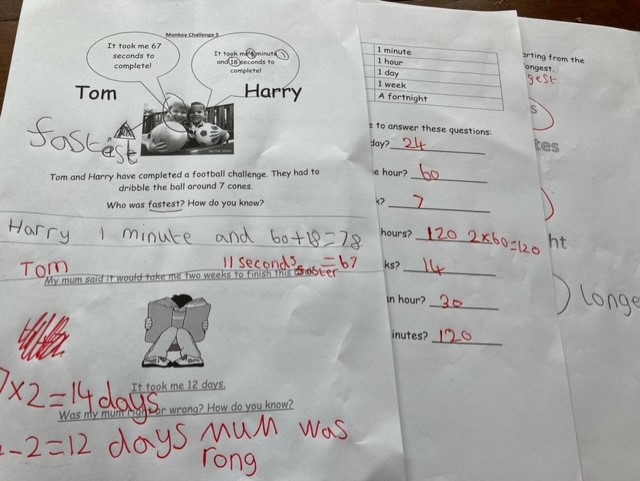 Monkey Challenge 5
It took me 67
seconds to
complete!
It took me 1 minute
and 18 seconds to
complete!
Tom
Harry
fastest
Tom and Harry have completed a football challenge. They had to
dribble the ball around 7 cones.
Who was fastest? How do you know?
Harry 1 minute and 60+18=78
Tom 11 seconds faster =67
My mum said it would take me two weeks to finish this
7x2=14 days
It took me 12 days.
Was my mum right or wrong? How do you know?
-2=12 days mum was
rong
1 minute
1 hour
1 day
1 week
A fortnight
to answer these questions:
day? 24
hour? 60
7
hours? 120 2x60=120
14
hour? 30
120
arting from the
ongest.
gest
s
tes
ht
longe